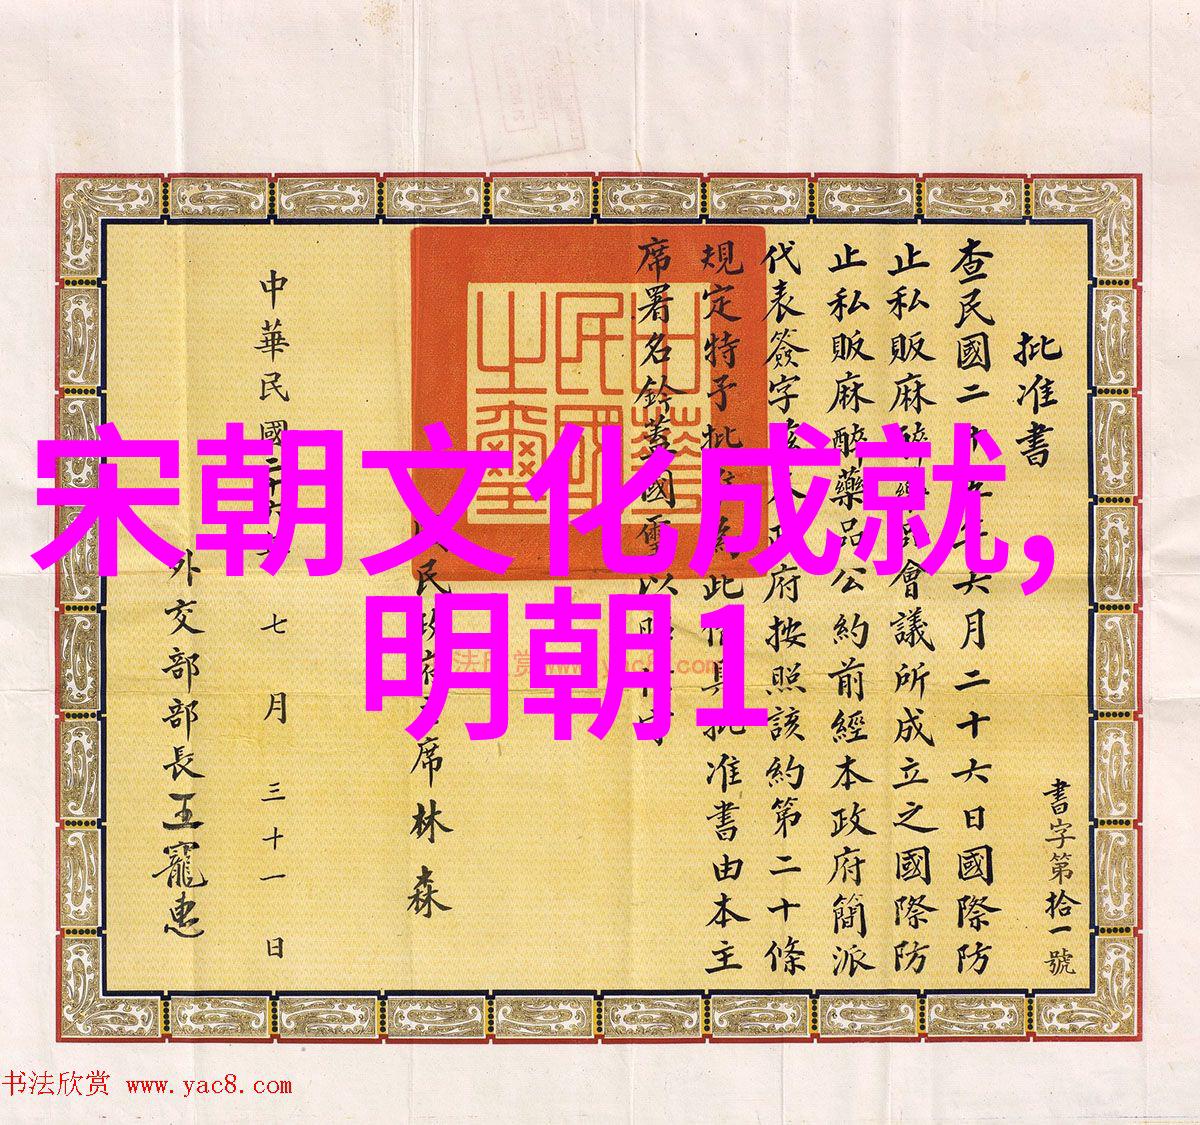 宋朝文化成就,
明朝1
批准書
查民國二十五年六月二十六日國際防
止私販麻醉藥品會議所成立之國際防
止私販麻醉藥品公約前經本政府簡派
代表簽字 府按照該約第二十條
規定特予批 為此 具批准書由本主
席署名鈐蓋國璽以昭
中華民國二十六年七月三十一日
民政府主席林森
外交部部長王寵惠
書字第拾一號
中華民國之璽
书法欣赏 www.yac8.com
法欣赏 www.yac8.com